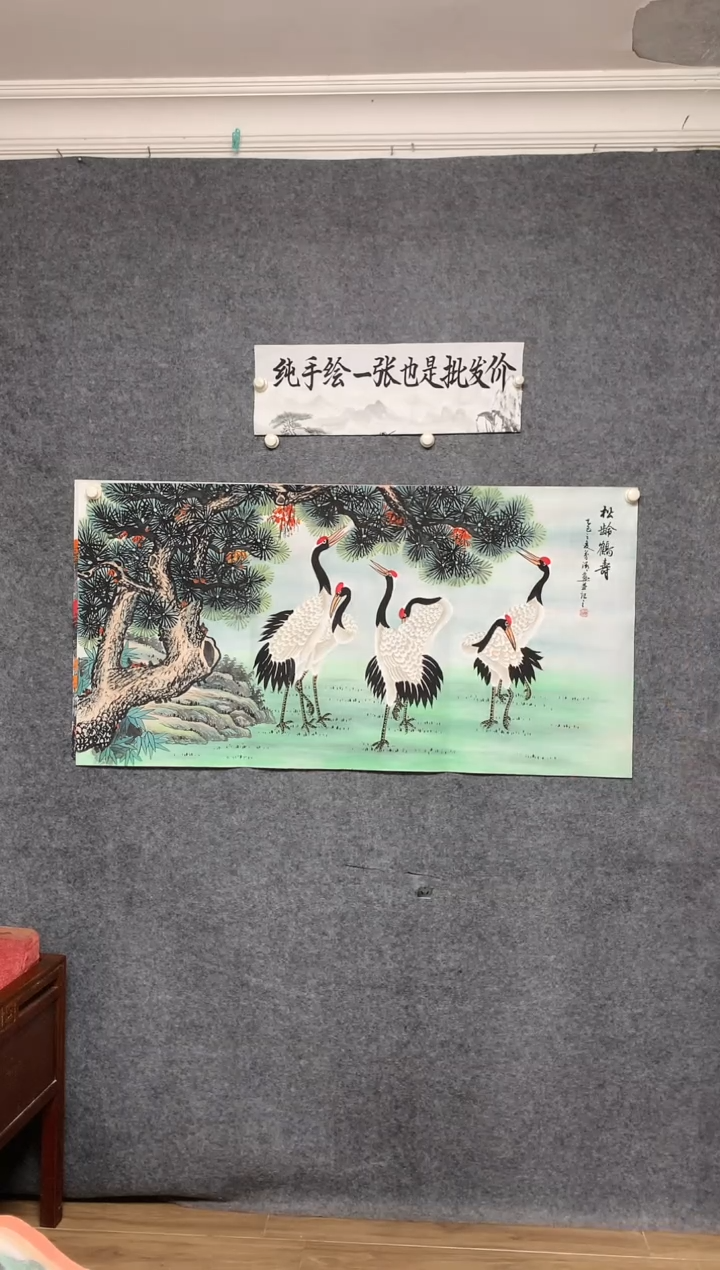 纯手绘一张也是批发价
松龄鹤寿